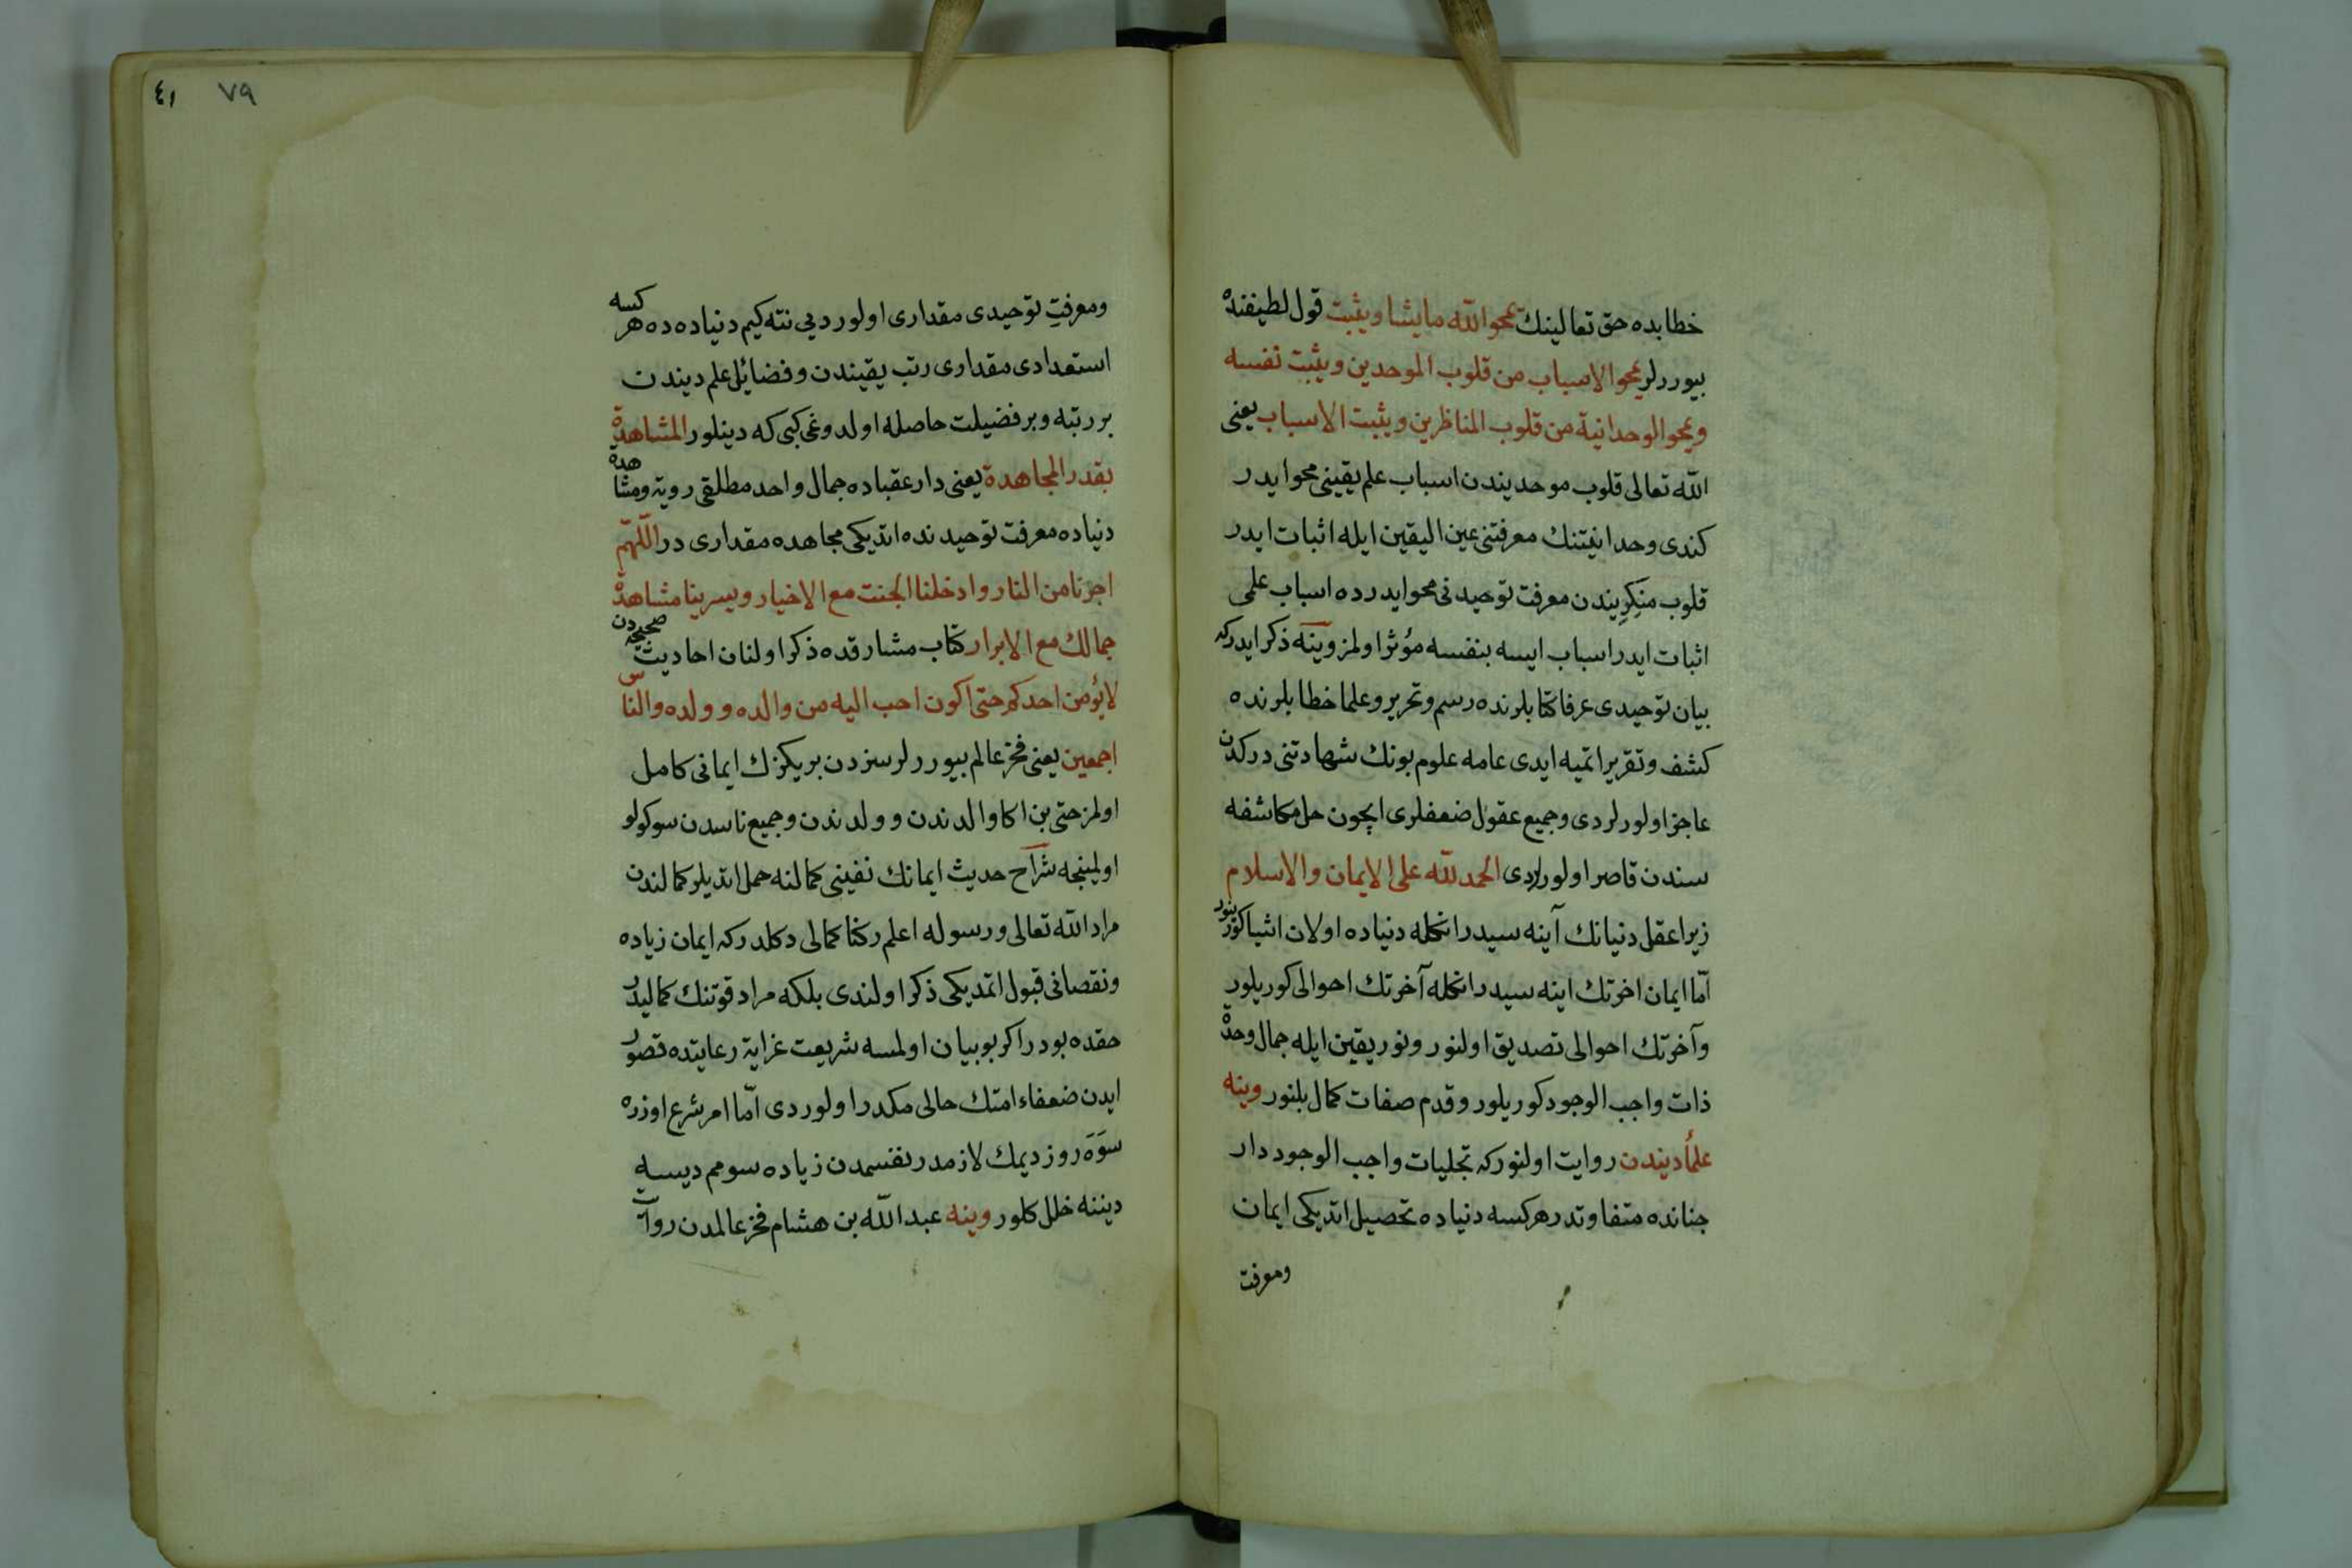 خطابده حق تعالینك یمحوا الله ما یشا ویثبت قول لطیفنده
بیوررلر یمحوا الاسباب من قلوب الموحدین ویثبت نفسه
ویمحوا الوحدانیة من قلوب المناظرین ویثبت الاسباب یعنی
الله تعالی قلوب موحدیندن اسباب علم یقینی محو ایدر
کندی وحدانیتنك معرفتنی عین الیقین ایله اثبات ایدر
قلوب منکریندن معرفت توحیدنی محو ایدرده اسباب علمی
اثبات ایدر اسباب ایسه بنفسه مؤثر اولمز وینه ذکر ایدرکه
بیان توحیدی عرفا کتابلرنده رسم وتحریر وعلما خطابلرنده
کشف وتقریر اتمیه ایدی عامه علوم بونك شهادتنی درکدن
عاجز اولورلردی وجمیع عقول ضعفلری ایچون حل مکاشفه
سندن قاصر اولورلردی الحمد لله علی الایمان والاسلام
زیرا عقل دنیانك آینه سیدر انکله دنیاده اولان اشیا کورینور
اما ایمان اخرتك اینه سیدر انکله آخرتك احوالی کوریلور
وآخرتك احوالی تصدیق اولنور ونور یقین ایله جمال وحدة
ذات واجب الوجود کوریلور وقدم صفات کمال بلنور وینه
علمأ دیندن روایت اولنورکه تجلیات واجب الوجود دار
جنانده متفاوتدر هرکسه دنیاده تحصیل اتدیکی ایمان
ومعرفت
٤١ ٧٩
ومعرفت توحیدی مقداری اولور دیی نته کیم دنیاده ده هر کسه
استعدادی مقداری رتب یقیندن وفضائل علم دیندن
بر رتبه وبر فضیلت حاصله اولدوغی کبی که دینلور المشاهدة
بقدر المجاهدة یعنی دار عقباده جمال واحد مطلقی رویة ومشاهده
دنیاده معرفت توحیدنده اتدیکی مجاهده مقداری در اللهم
اجرنا من النار وادخلنا الجنت مع الاخیار ویسر بنا مشاهدة
جمالك مع الابرار کتاب مشارقده ذکر اولنان احادیث صحیحه دن
لا یؤمن احدکم حتی اکون احب الیه من والده وولده والناس
اجمعین یعنی فخر عالم بیوررلر سزدن بریکزك ایمانی کامل
اولمز حتی بن اکا والدندن وولدندن وجمیع ناسدن سوکولو
اولمینجه شراح حدیث ایمانك نفینی کمالنه حمل اتدیلر کمالندن
مراد الله تعالی ورسوله اعلم رکنا کمالی دکلدرکه ایمان زیاده
ونقصانی قبول اتمدیکی ذکر اولندی بلکه مراد قوتنك کمالیدر
حقده بودر اکر بو بیان اولمسه شریعت غرایه رعایتده قصور
ایدن ضعفاء امتك حالی مکدر اولوردی اما امر شرع اوزره
سوه روز دیمك لازمدر نفسمدن زیاده سومم دیسه
دیننه خلل کلور وینه عبد الله بن هشام فخر عالمدن روایت